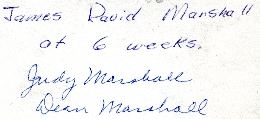 James David Marshall
at 6 weeks.
Judy Marshall
Dean Marshall